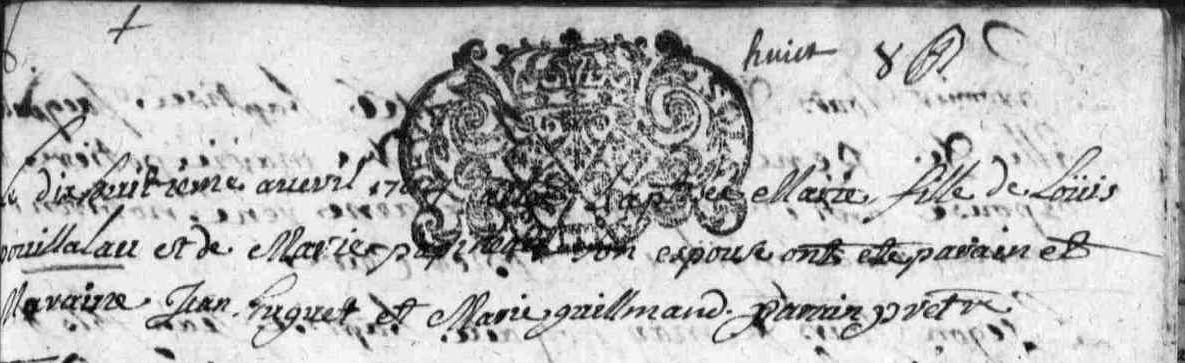 huict 8
le dix huitzieme auvril esté baptisée Marie fille de Loüis
pouillalau et de Marie son espouse onts ete parain et
Maraine Jean huguet et Marie guillmaud. parrin pretre